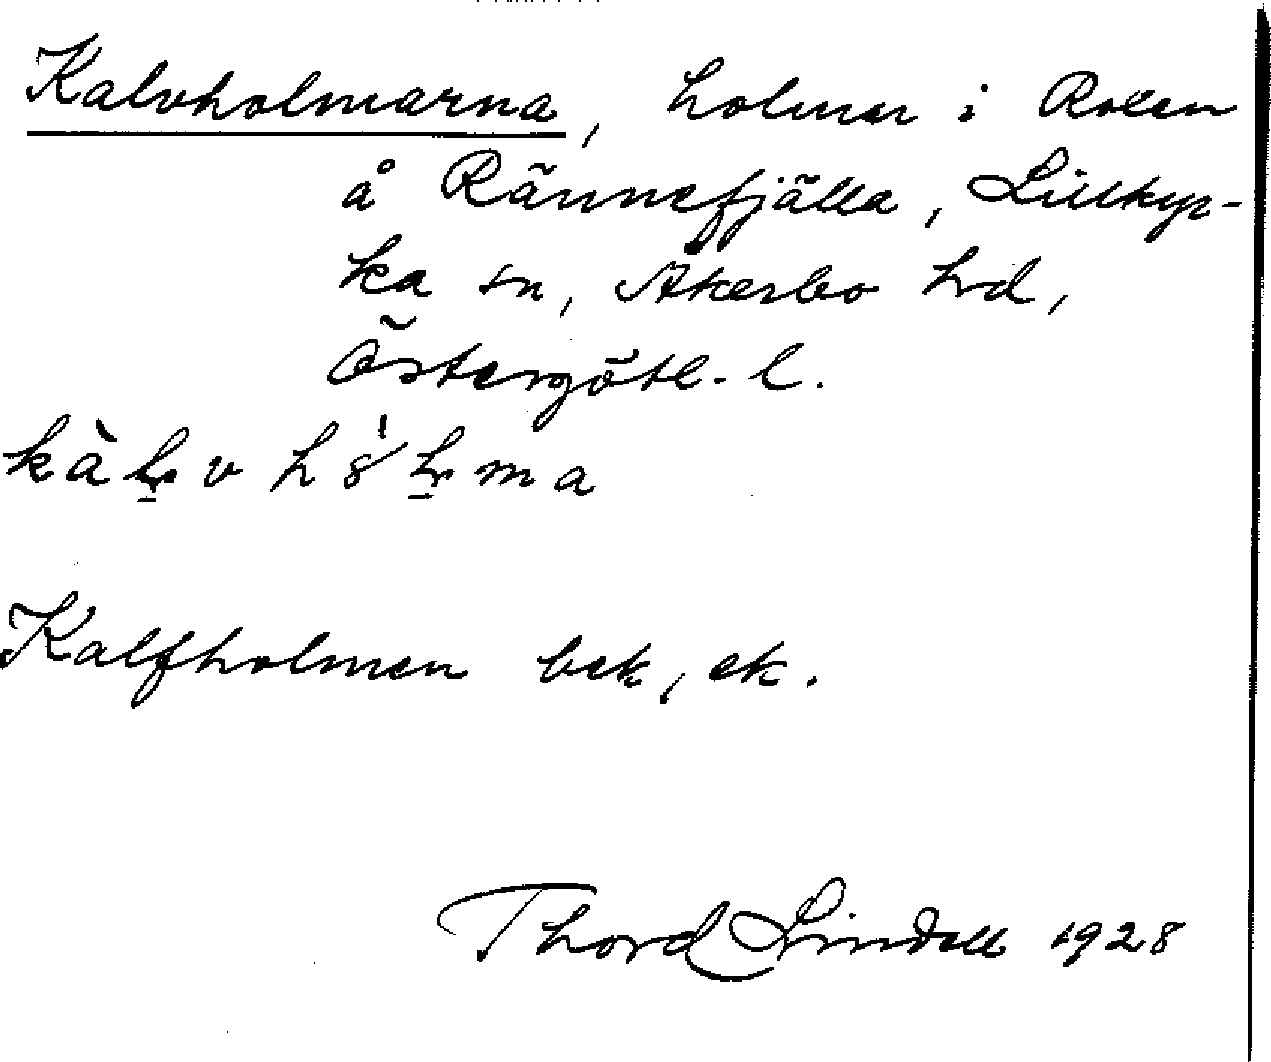 Kalvholmarna, holmar i Roxen
å Rännefjälla, Lillkyr-
ka sn, Åkerbo hd,
Östergötl. l.
Kalfholmen bek, ek.
Thord Lindell 1928